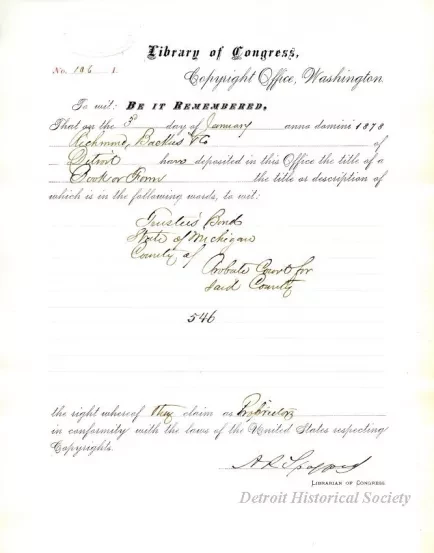 Library of Congress,
No. 106 I.
Copyright Office, Washington.
To wit: BE IT REMEMBERED,
That on the 3d day of January anno domini 1878
Richmond, Backus & Co of
Detroit have deposited in this Office the title of a
Book or Form the title as description of
which is in the following words, to wit:
Trustee's Bond
State of Michigan
County of
Probate Court for
said County
546
the right whereof they claim as Proprietors
in conformity with the laws of the United States respecting
Copyrights.
A R Spofford
LIBRARIAN OF CONGRESS.
Detroit Historical Society